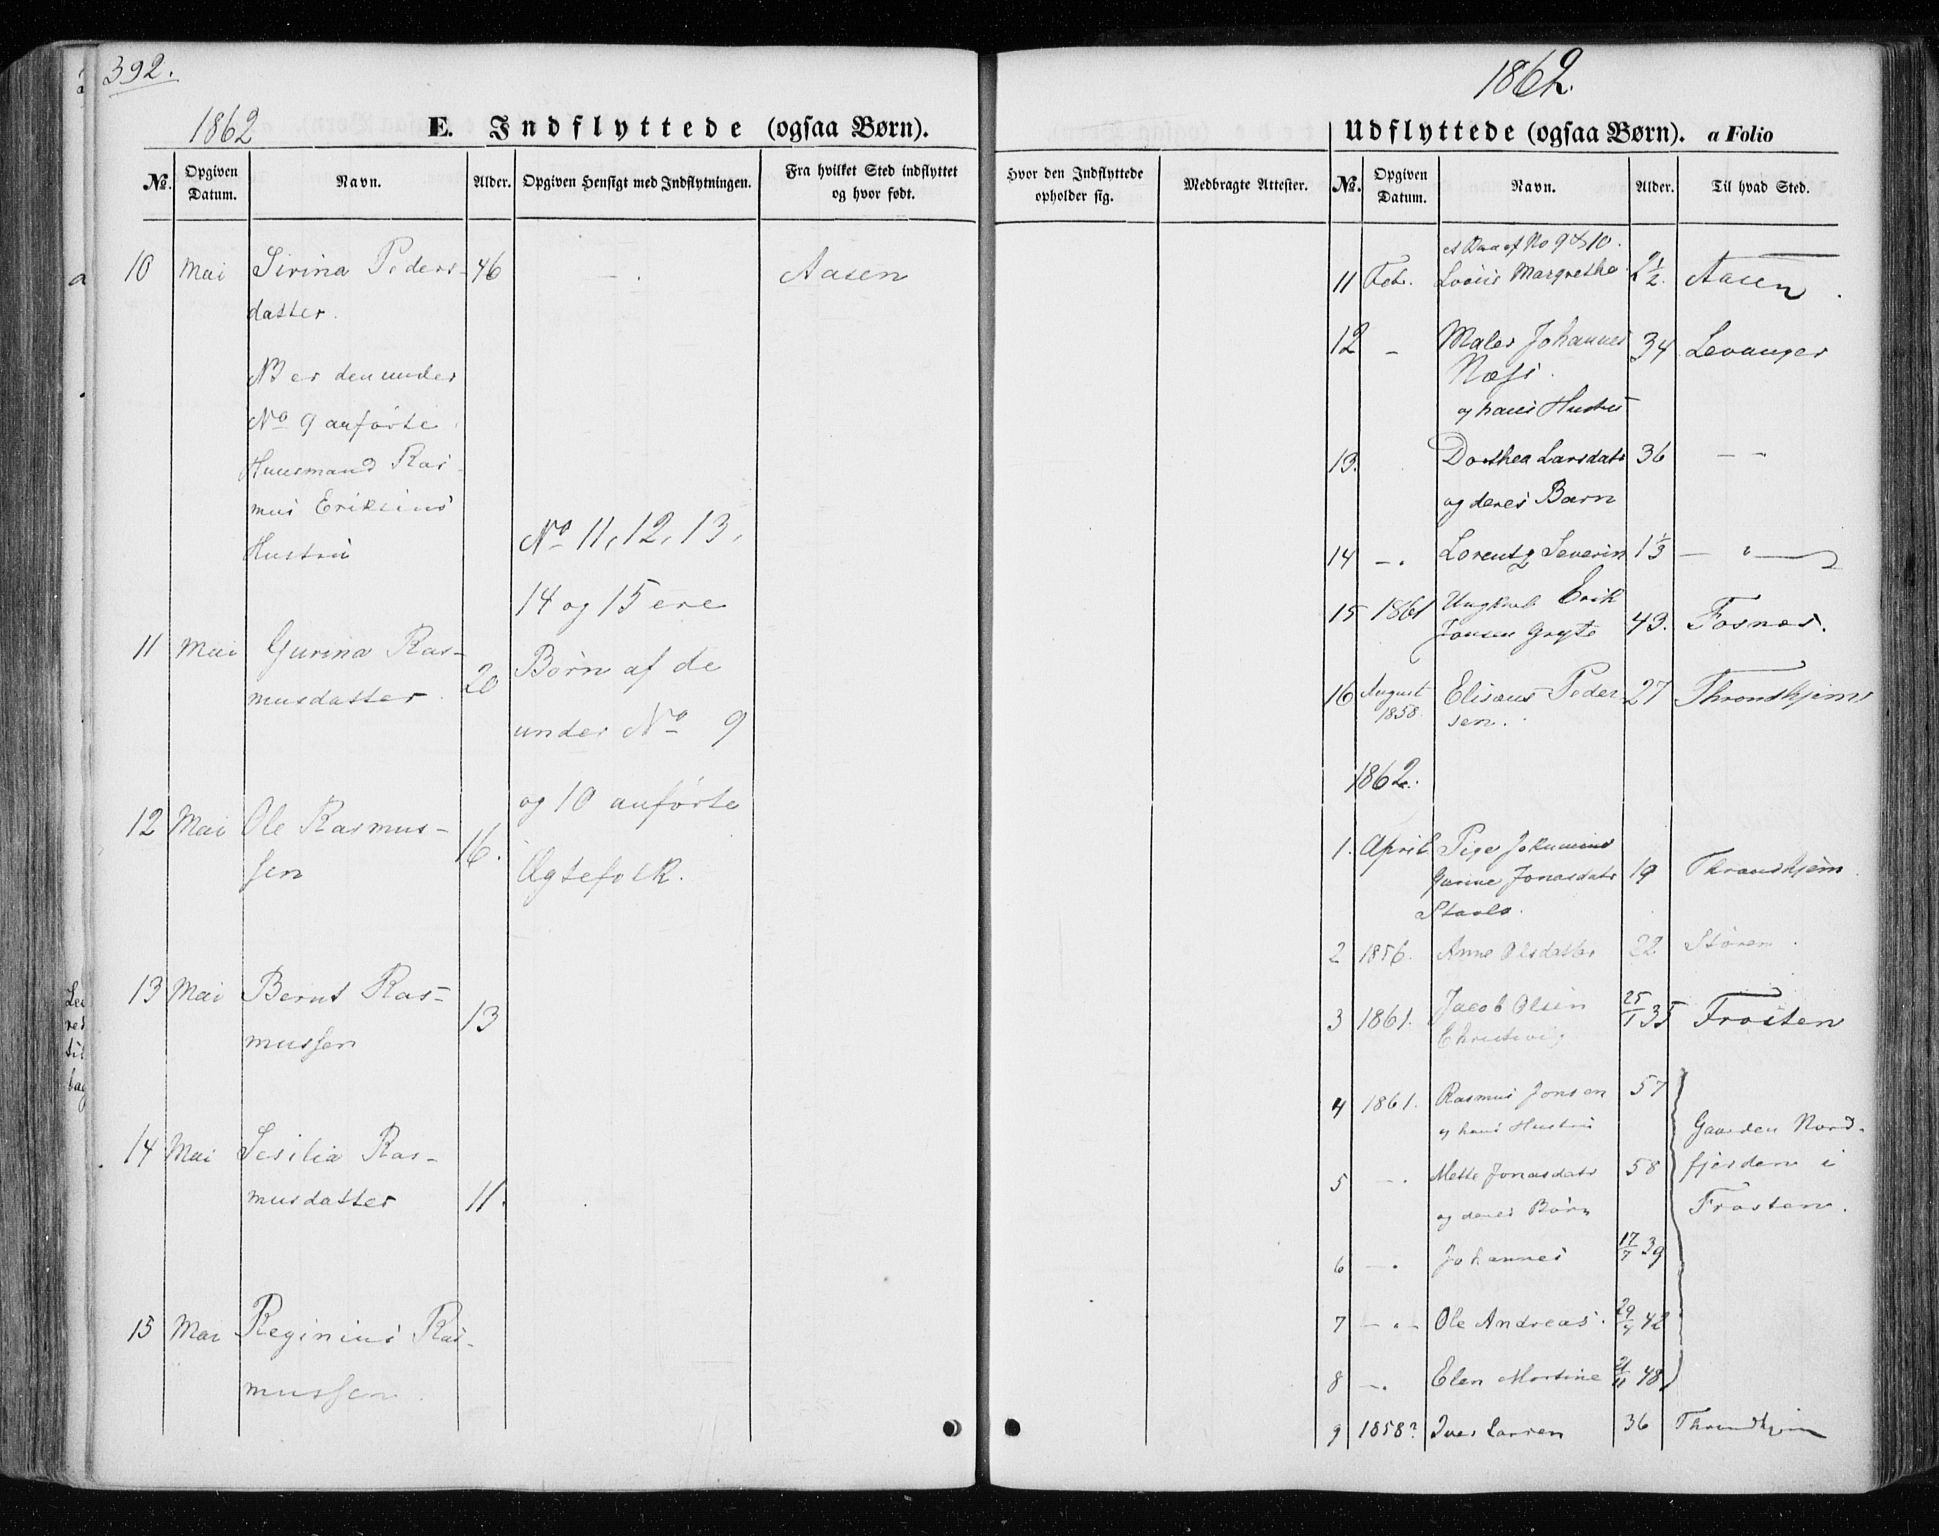 392.
1862
E. Indflyttede (ogsaa Børn).
No. Opgiven Datum. Navn. Alder. Opgiven Hensigt med Indflytningen. Fra hvilket Sted indflyttet og hvor født.
10 Mai Sirina Peders- 46 — . Aasen
datter.
NB er den under
No 9 anførte
Huusmand Ras-
mus Eriksens
Hustru
No 11, 12, 13,
14 og 15 ere
Børn af de
under No 9
og 10 anførte
Ægtefolk.
11 Mai Gurina Ras- 20
musdatter.
12 Mai Ole Rasmus- 16.
sen
13 Mai Bernt Ras- 13
mussen
14 Mai Sesilia Ras-
musdatter 11.
15 Mai Reginius Ras-
mussen.
1862.
Udflyttede (ogsaa Børn). a Folio
Hvor den Indflyttede opholder sig. Medbragte Attester. No. Opgiven Datum. Navn. Alder. Til hvad Sted.
No 9 & 10.
11 Feb. Margrethe 2½. Aasen.
12 — Maler Johannes 34 Levanger
Næss.
og hans Hustru
13. Dorthea Larsdatr 36 — —
og deres Barn
14 — . Lorentz Severin 1⅓ — " —
15 1861 Ungkarl Erik
Jonsen Gryte 43. Fosnes.
16 August 1858 Elisæus Peder- 27 Throndhjem
sen.
1862.
1. April Pige
Gurine Jonasdatr 19 Throndhjem.
2 1856. Anne Olsdatter 22 Støren.
3 1861. Jacob Olsen 25/1 35 Frosten
4 1861. Rasmus Jonsen 57
og hans Hustru
5 — . Mette Jonasdatr 58
og deres Børn
Gaarden Nord-
fjorden i
Frosten.
6 — . Johannes 17/7 39
7 — " — Ole Andreas. 29/4 42
8 — . Elen Martine 21/11 48
9 1858? Iver Larsen 36 Throndhjem